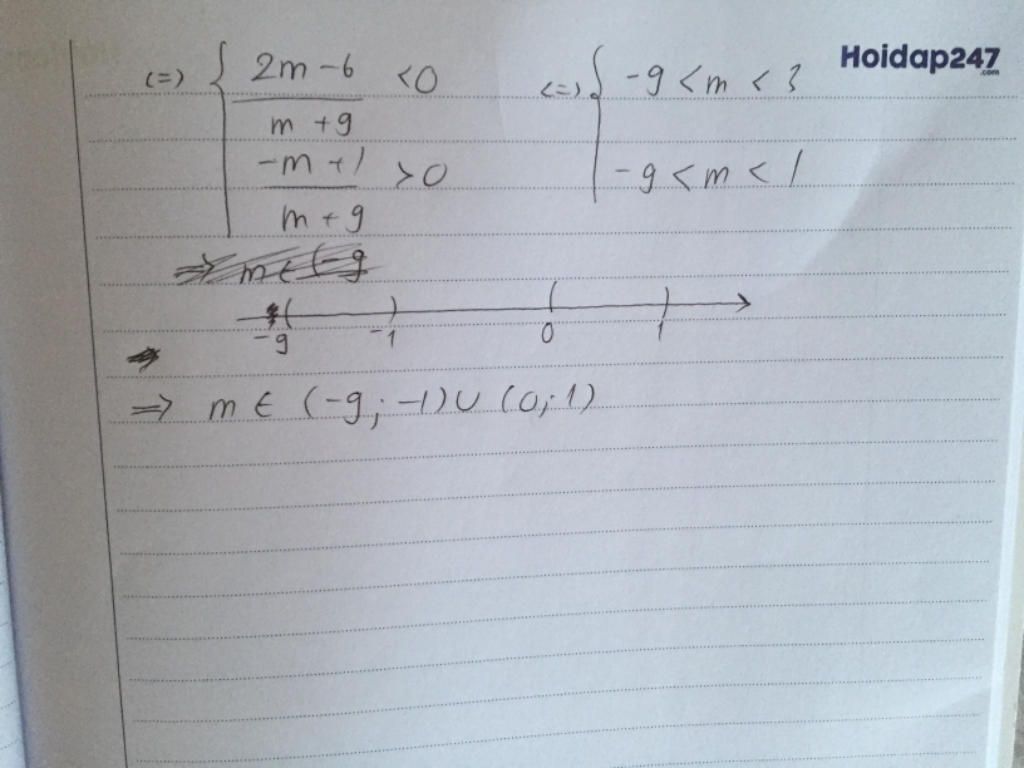 Hoidap247
.com
(=) { 2m - 6 / m + 9 < 0 <=> { -9 < m < 3
-m + 1 / m + 9 > 0 -9 < m < 1
=> m ∈ (-9
-9 -1 0 1
=> m ∈ (-9; -1) ∪ (0; 1)